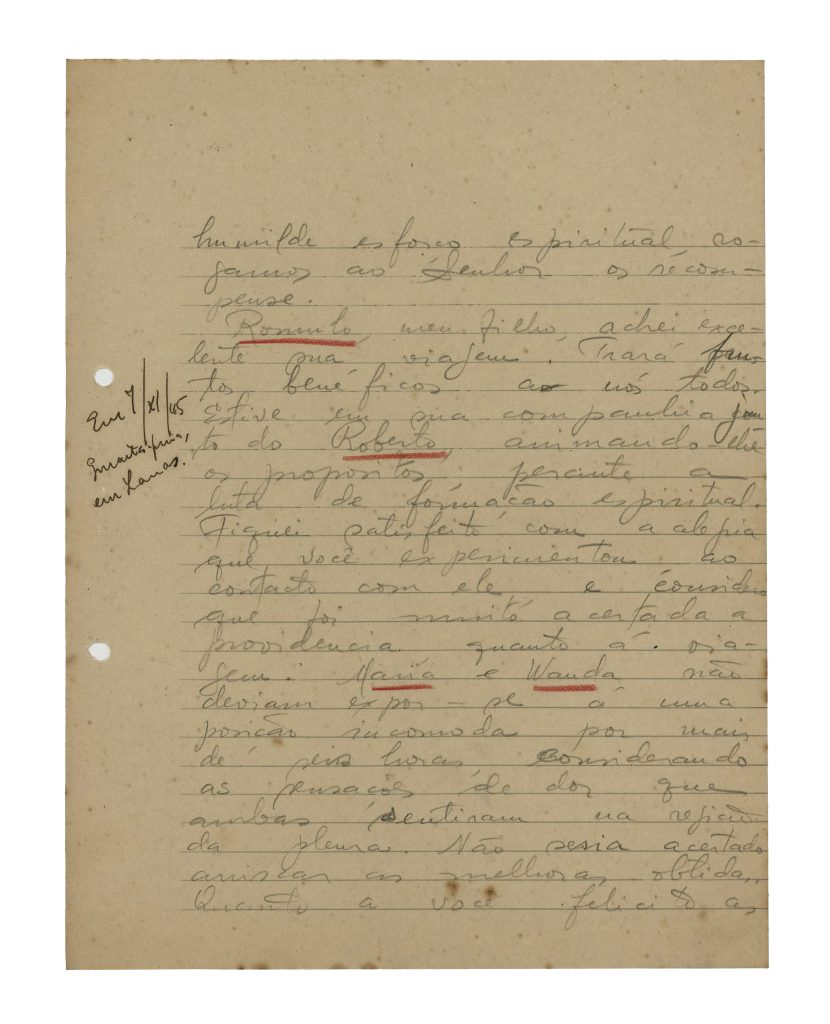 humilde esforço espiritual ro-
gamos ao Senhor os recom-
pense.
Romulo, meu filho, achei exce-
lente sua viagem. Trará fru-
tos benéficos a nós todos.
Estive em sua companhia jun
to do Roberto, animando-lhe
os propositos perante a
luta de formação espiritual.
Fiquei satisfeito com a alegria
que você experimentou ao
contacto com ele e considero
que foi muito acertada a
providencia quanto á via-
gem. Maria e Wanda não
deviam expor-se á uma
posição incomoda por mais
de seis horas considerando
as sensações de dor que
ambas sentiram na região
da pleura. Não seria acertado
arriscar as melhoras obtidas.
Quanto a você felicito as
Em 7/XI/45
em Lavras.